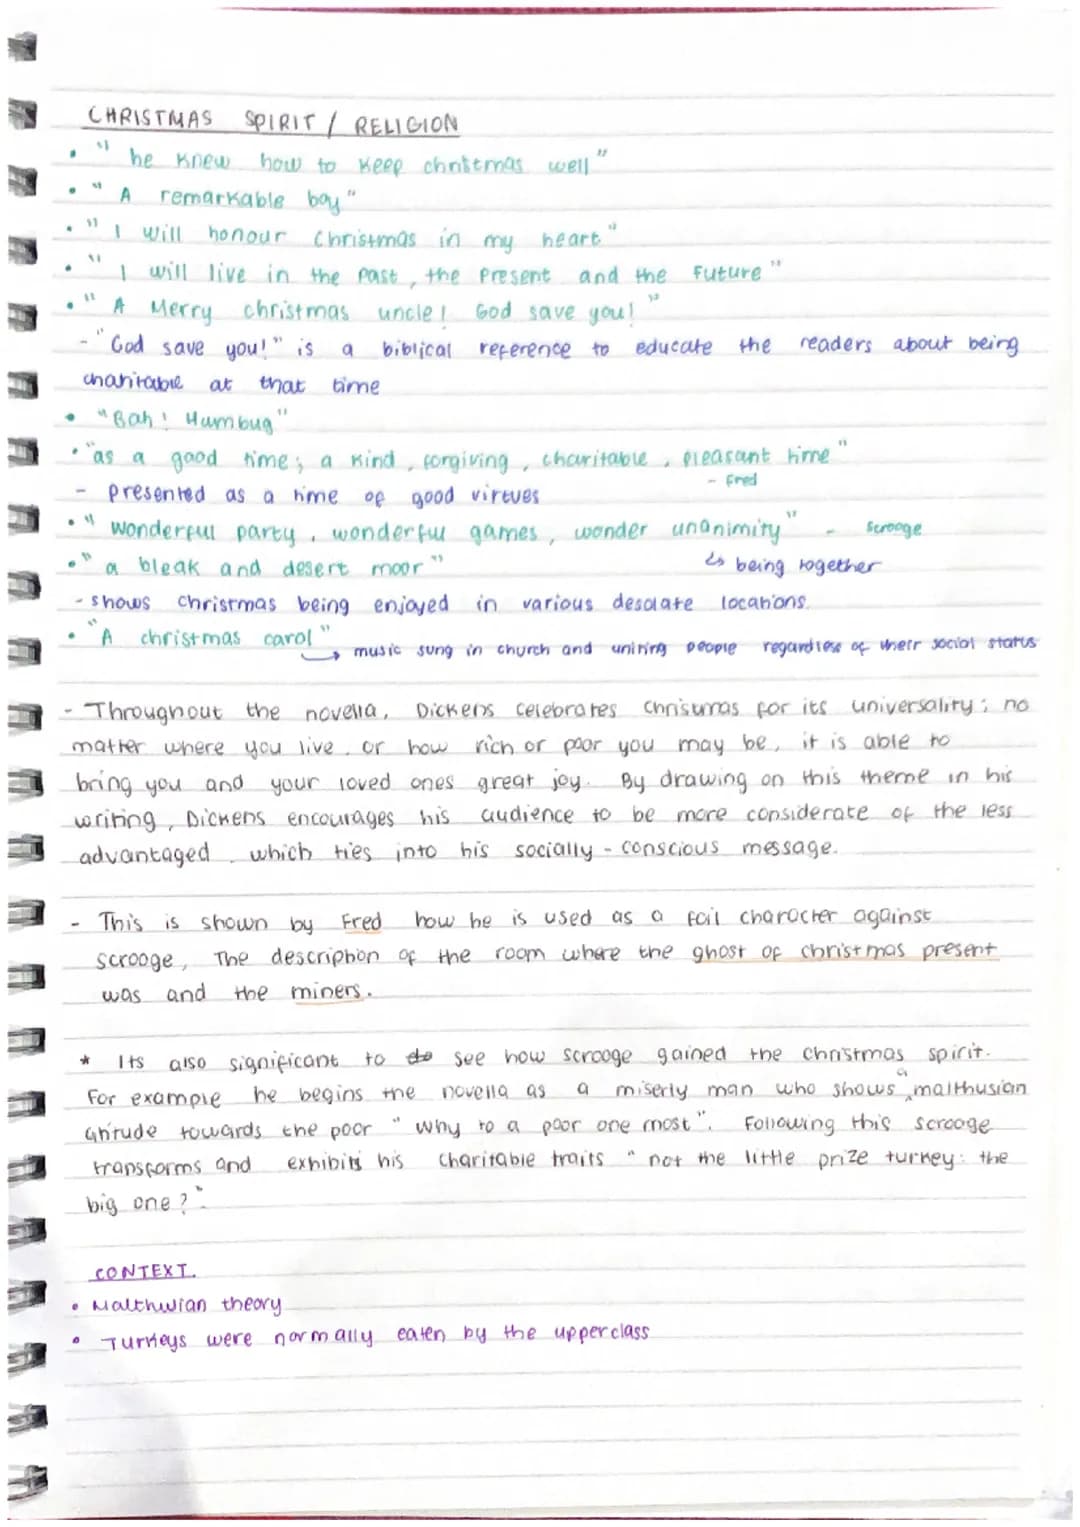 CHRISTMAS SPIRIT / RELIGION
• "he knew how to keep christmas well"
• "A remarkable boy"
• "I will honour Christmas in my heart"
• "I will live in the past, the Present and the Future"
• "A Merry christmas uncle! God save you!"
- "God save you!" is a biblical reference to educate the readers about being
charitable at that time
• "Bah! Humbug"
• "as a good time; a kind, forgiving, charitable, pleasant time"
- Fred
- presented as a time of good virtues
• "wonderful party, wonderful games, wonder unanimity" - scrooge
↳ being together
• "a bleak and desert moor"
- shows Christmas being enjoyed in various desolate locations.
• "A christmas carol"
→ music sung in church and uniting people regardless of their social status
- Throughout the novella, Dickens celebrates christmas for its universality; no
matter where you live, or how rich or poor you may be, it is able to
bring you and your loved ones great joy. By drawing on this theme in his
writing, Dickens encourages his audience to be more considerate of the less
advantaged, which ties into his socially-conscious message.
- This is shown by Fred how he is used as a foil character against
scrooge, The description of the room where the ghost of christmas present
was and the miners.
* Its also significant to do see how scrooge gained the christmas spirit.
For example he begins the novella as a miserly man who shows a malthusian
attitude towards the poor "why to a poor one most". Following this scrooge
transforms and exhibits his charitable traits "not the little prize turkey: the
big one?".
CONTEXT.
• Malthusian theory
• Turkeys were normally eaten by the upperclass